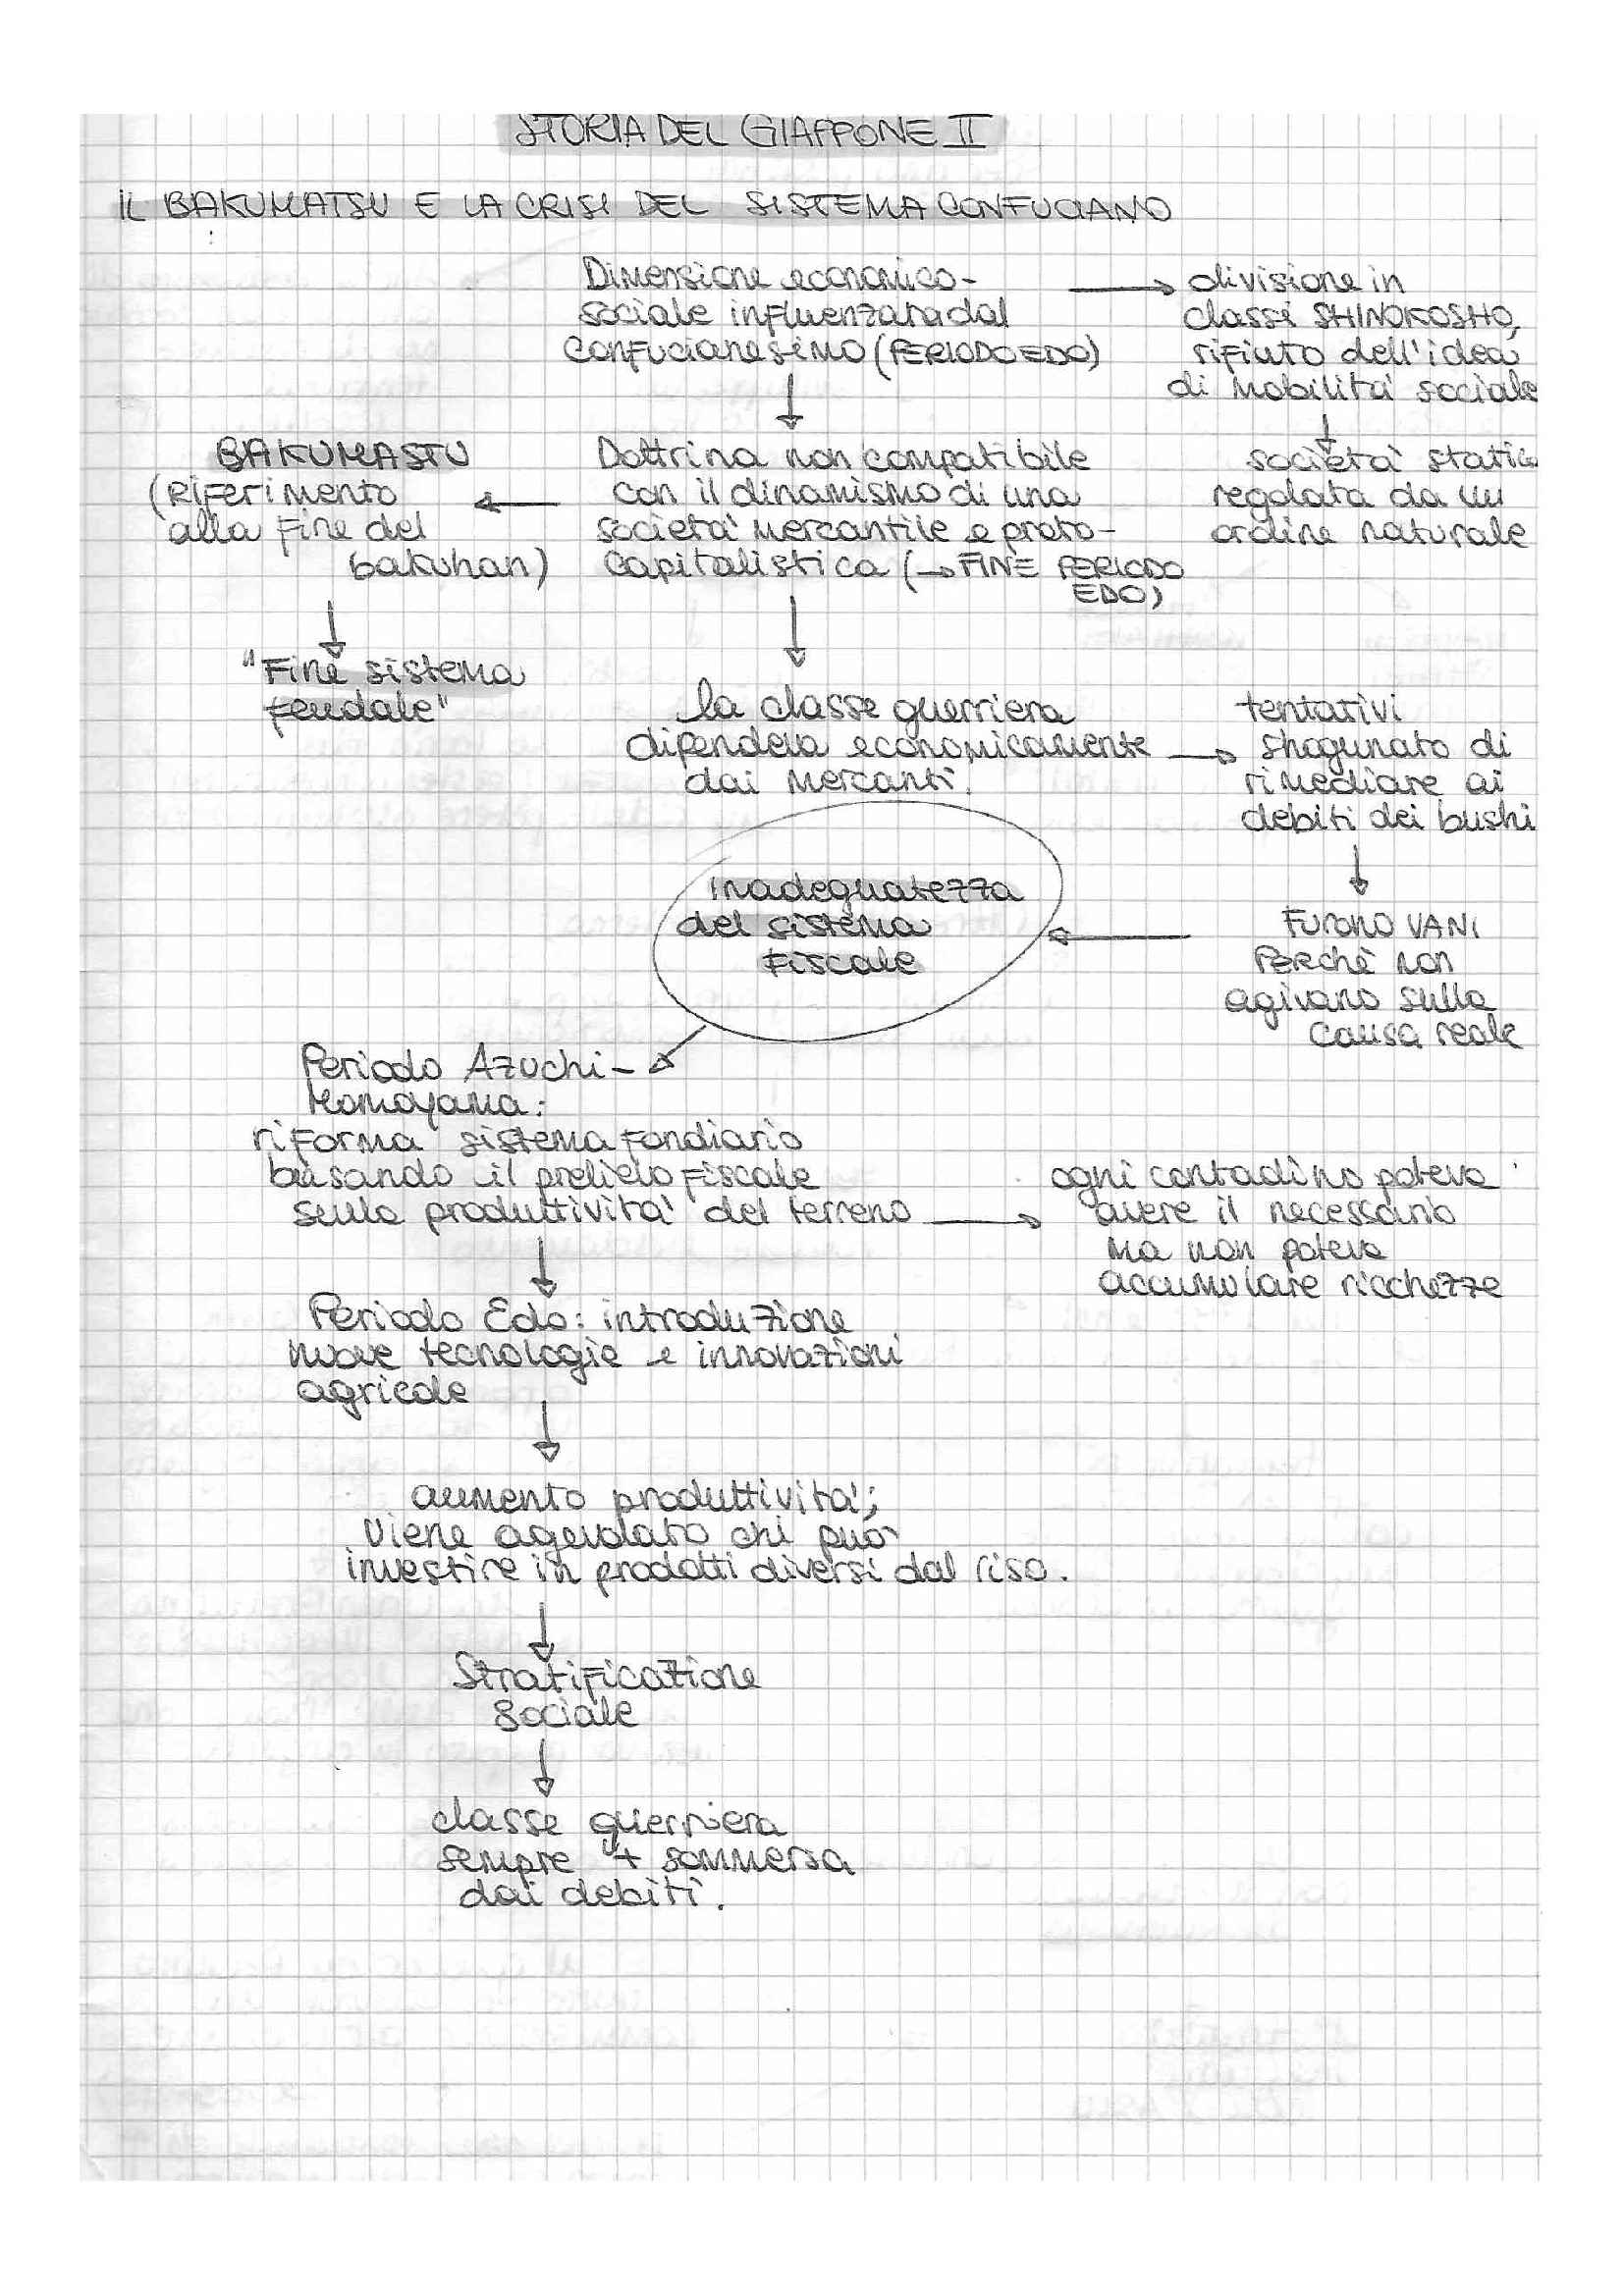 STORIA DEL GIAPPONE II
IL BAKUMATSU E LA CRISI DEL SISTEMA CONFUCIANO
Dimensione economico-
sociale influenzata dal
confucianesimo (PERIODO EDO)
divisione in
classi SHINOKOSHO,
rifiuto dell'idea
di mobilità sociale
BAKUMASTU
(riferimento
alla fine del
bakuhan)
Dottrina non compatibile
con il dinamismo di una
società mercantile e proto-
capitalistica (→ FINE PERIODO
EDO)
società statica
regolata da un
ordine naturale
"Fine sistema
feudale"
la classe guerriera
dipendeva economicamente
dai mercanti.
tentativi
shogunato di
rimediare ai
debiti dei bushi
inadeguatezza
del sistema
fiscale
Furono VANI
PERCHÈ non
agivano sulla
causa reale
Periodo Azuchi-
Momoyama:
riforma sistema fondiario
basando il prelievo fiscale
sulla produttività del terreno
ogni contadino poteva
avere il necessario
ma non poteva
accumulare ricchezze
Periodo Edo: introduzione
nuove tecnologie e innovazioni
agricole
aumento produttività;
viene agevolato chi può
investire in prodotti diversi dal riso.
Stratificazione
sociale
classe guerriera
sempre + sommersa
dai debiti.